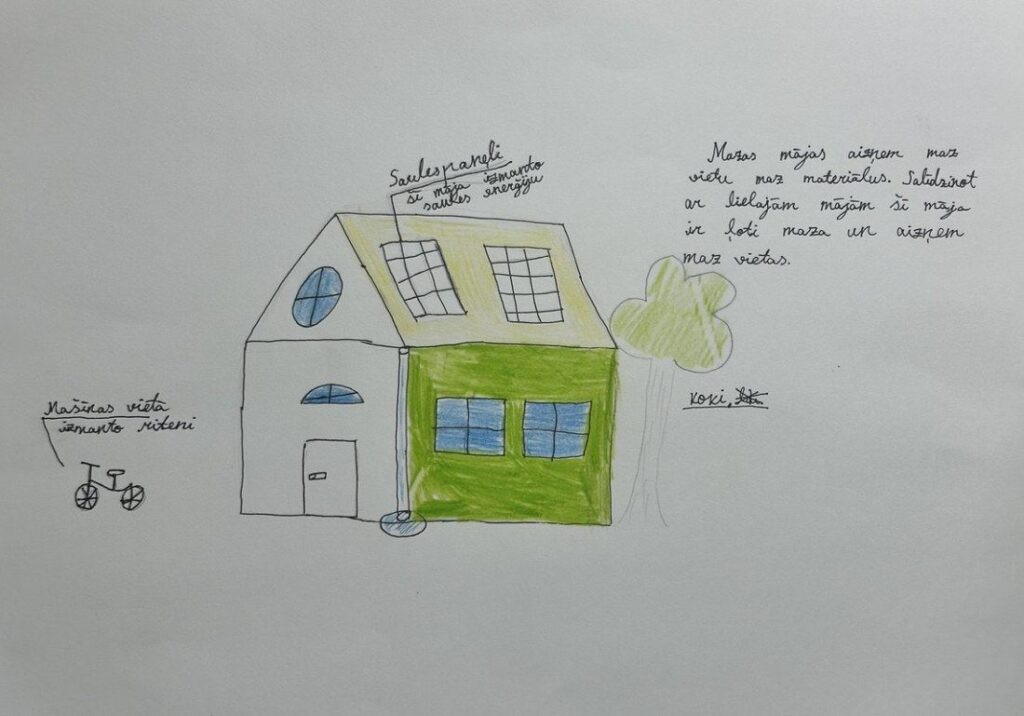 Saulespaneļi
šī māja izmanto
saules enerģiju
Mazas mājas aizņem maz
vietu maz materiālus. Salīdzinot
ar lielajām mājām šī māja
ir ļoti maza un aizņem
maz vietas.
Mašīnas vietā
izmanto riteni
koki,